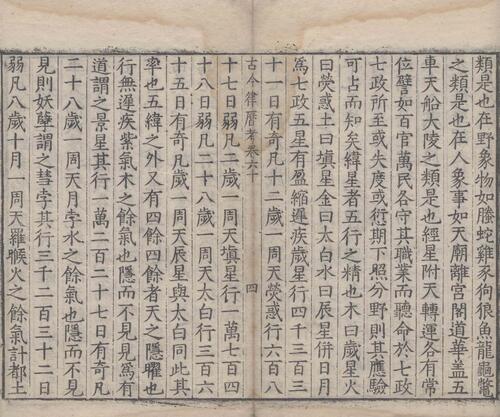 類是也在野象物如螣蛇雞豕狗狼魚龍龜鼈
之類是也在人象事如天廟離宮閣道華蓋五
車天船大陵之類是也經星附天轉運各有常
位譬如百官萬民各守其職業而聽命於七政
七政所至或失度或衍期下照分野則其應驗
可占而知矣緯星者五行之精也木曰歲星火
曰熒惑土曰塡星金曰太白水曰辰星併日月
爲七政五星有盈縮遲疾歲星行四千三百三
十一日有奇凡十二歲一周天熒惑行六百八
古今律曆考卷六十 四
十七日弱凡二歲一周天塡星行一萬七百四
十八日弱凡二十八歲一周天太白行三百六
十五日有奇凡歲一周天辰星與太白同此其
率也五緯之外又有四餘四餘者天之隱曜也
行無遲疾紫氣木之餘氣也隱而不見見爲有
道謂之景星其行一萬二百二十七日有奇凡
二十八歲一周天月孛水之餘氣也隱而不見
見則妖孽謂之彗孛其行三千二百三十二日
弱凡八歲十月一周天羅睺火之餘氣計都土